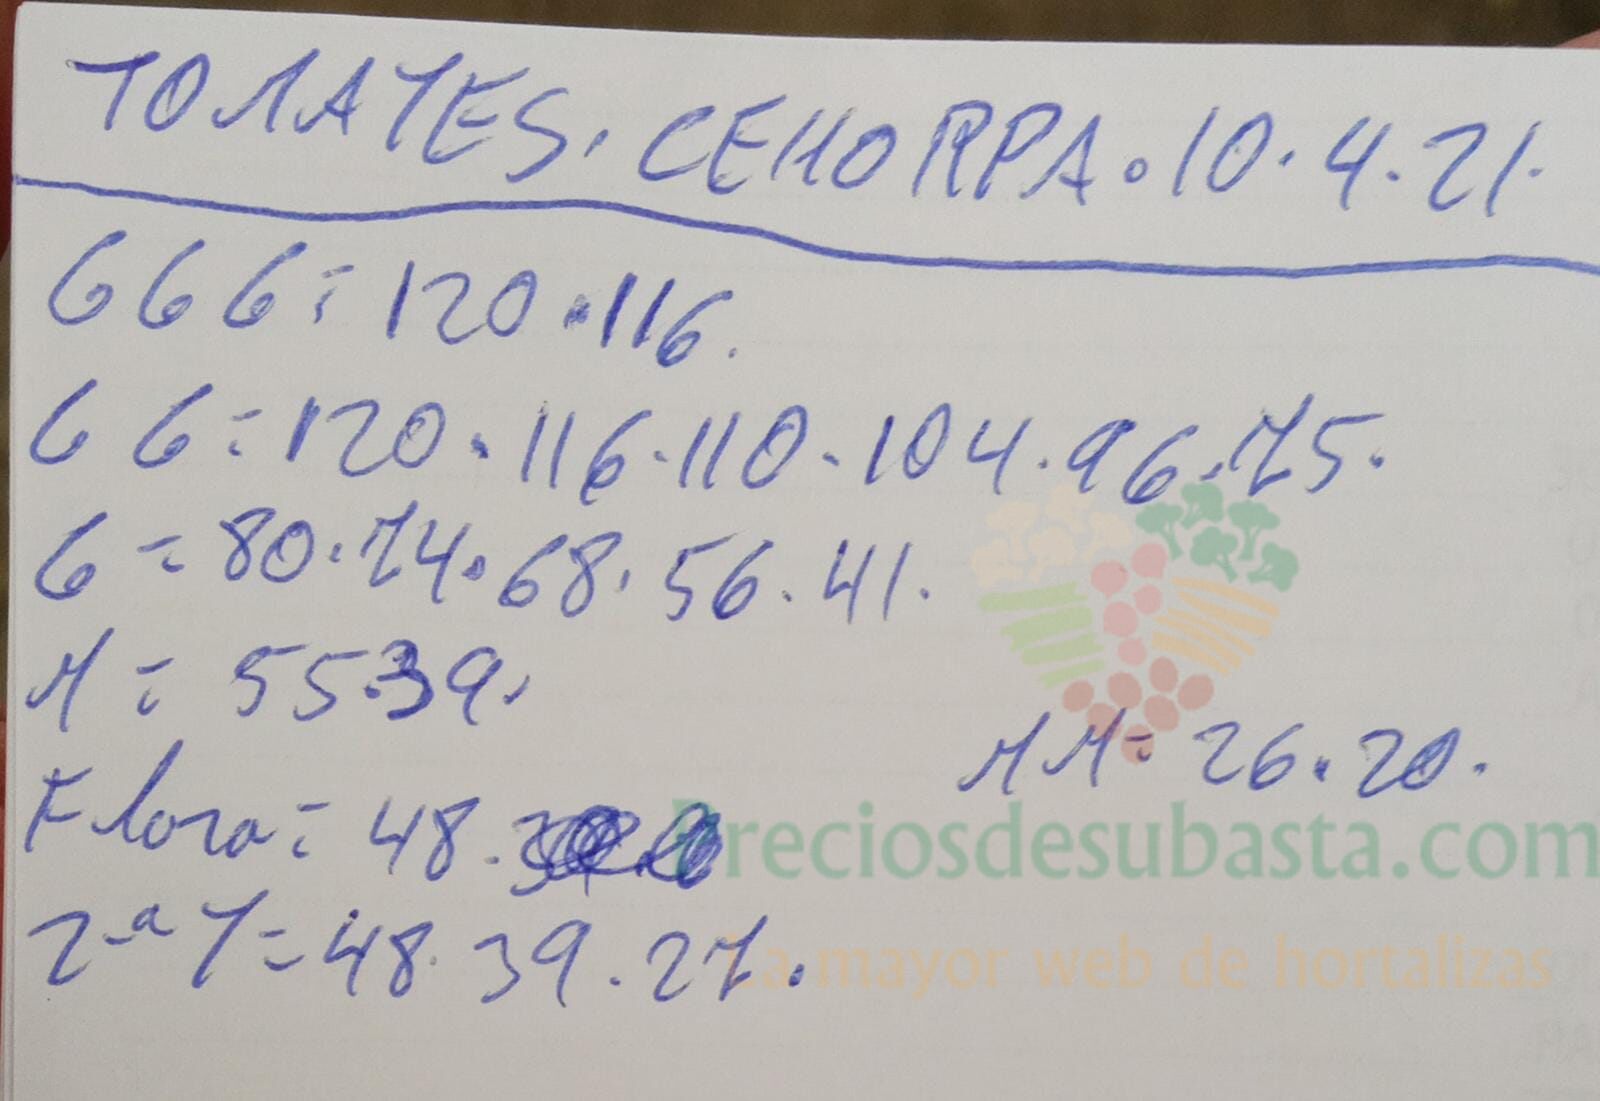 TOMATES. CEHORPA. 10.4.21.
GGG = 120.116.
GG = 120.116.110.104.96.75.
G = 80.74.68.56.41.
M = 55.39.
MM = 26.20.
Flora = 48.
2ª T = 48.39.27.
Preciosdesubasta.com
La mayor web de hortalizas